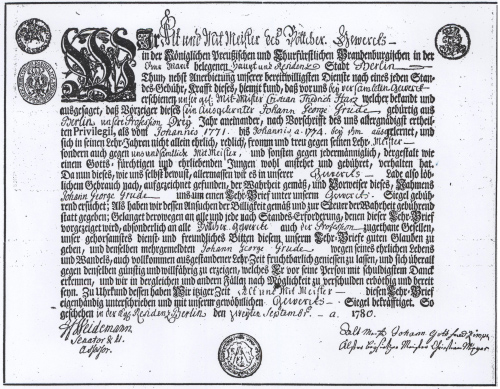 Wir Alt und Mit Meister des Böttcher Gewercks
in der Königlichen Preußischen und Churfürstlichen Brandenburgischen in der
Chur Marck belegenen Haupt und Residenz Stadt Berlin
Thun, nebst Anerbietung unserer bereitwilligsten Dienste nach eines jeden Stan-
des-Gebühr, Krafft dieses, hiemit kund, daß vor uns bey versamleten Gewerck
erschienen unser Mit-Meister Friedrich welcher bekand und
ausgesaget, daß Vorzeiger dieses sein Ausgelernter Johann George Grude gebürtig aus
Berlin unsere Profession Drey Jahr aneinander, nach Vorschrifft des uns allergnädigst ertheil-
ten Privilegii, als von Johannis 1771. bis Johannis a. 1774. bey ihm ausgelernet, und
sich in seinen Lehr-Jahren nicht allein ehrlich, redlich, fromm und treu gegen seinen Lehr-Meister
sondern auch gegen uns und sämtliche Mit-Meister und sonsten gegen jedermänniglich, dergestalt wie
einem Gotts-fürchtigen und ehrliebenden Jungen wohl anstehet und gebühret, verhalten hat.
Da nun dieses, wie uns selbst bewust, allermassen wir es in unserer Gewercks-Lade also löb-
lichem Gebrauch nach, aufgezeichnet gefunden, der Wahrheit gemäß, und Vorweiser dieses, Nahmens
Johann George Grude uns um einen Lehr-Brief unter unserm Gewercks-Siegel gebüh-
rend ersuchet; Als haben wir dessen Ansuchen der Billigkeit gemäß und zur Steuer der Wahrheit gebührend
statt gegeben; Gelanget derowegen an alle und jede nach Standes-Erforderung, denen dieser Lehr-Brief
vorgezeiget wird, absonderlich an alle Böttcher Gewercke auch der Profession zugethane Gesellen,
unser gehorsamstes dienst- und freundliches Bitten diesem unserm Lehr-Briefe guten Glauben zu
geben, und denselben mehrgemeldten Johann George Grude wegen seines ehrlichen Lebens
und Wandels, auch vollkommen ausgestandener Lehr-Zeit fruchtbarlich geniesen zu lassen, und sich überall
gegen denselben günstig und willfährig zu erzeigen, welches Er vor seine Person mit schuldigstem Danck
erkennen, und wir in dergleichen und andern Fällen nach Möglichkeit zu verschulden erböthig und bereit
seyn. Zu Uhrkund dessen haben Wir itziger Zeit Alt und Mit Meister diesen Lehr-Brief
eigenhändig unterschrieben und mit unserm gewöhnlichen Gewercks-Siegel bekräfftiget. So
geschehen in der Residenz Berlin den September a. 1780.
Heidemann
Senator &
Assessor.
Alt Meister Johann Gottfried
Meister Christian